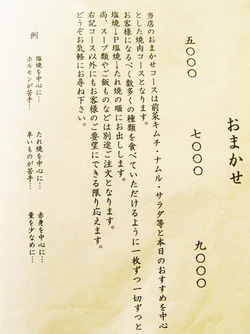 おまかせ
五〇〇〇
七〇〇〇
九〇〇〇
当店のおまかせコースは前菜キムチ・ナムル・サラダ等と本日のおすすめを中心
とした焼肉コースとなります。
お客様になるべく数多くの種類を食べていただけるように一枚ずつ一切ずつと
塩焼→P塩焼→たれ焼の順にお出しします。
尚、スープ類やご飯ものなどは別途ご注文となります。
右記コース以外にもお客様のご要望にできる限り応えます。
どうぞお気軽にお尋ね下さい。
例
塩焼を中心に…
ホルモンが苦手…
たれ焼を中心に…
辛いものが苦手…
赤身を中心に…
量を少なめに…